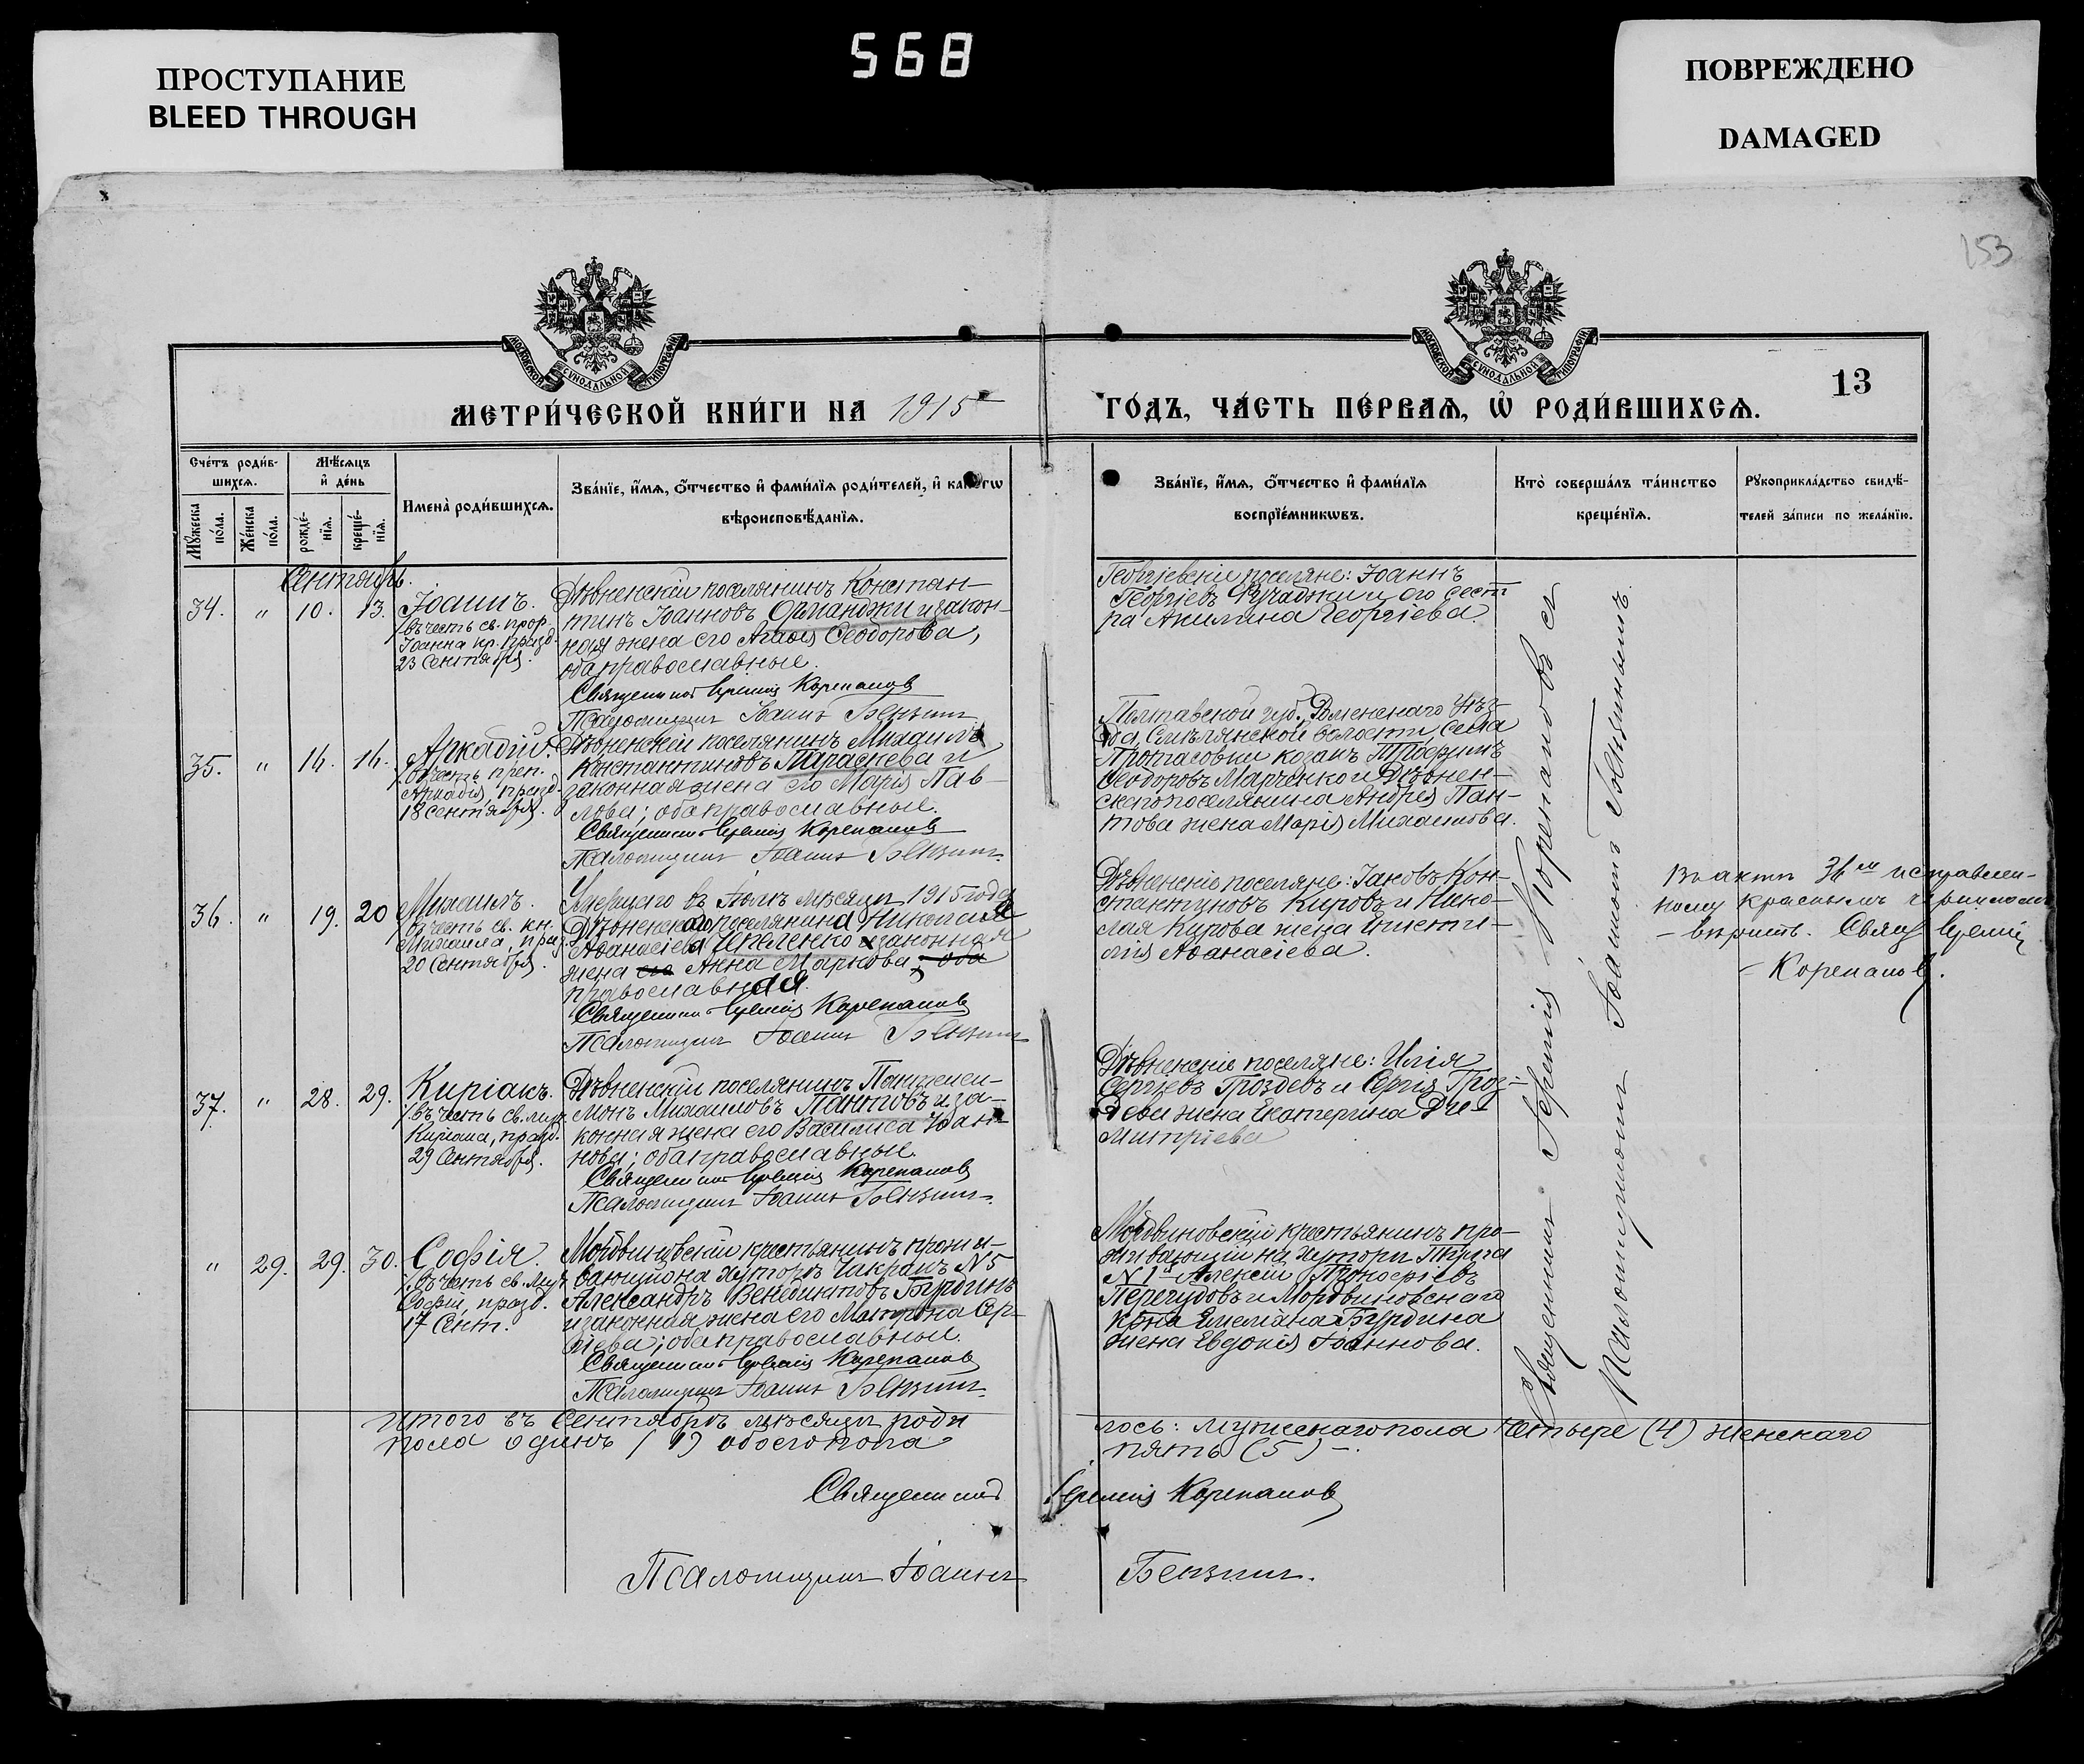 ПРОСТУПАНИЕ
BLEED THROUGH
568
ПОВРЕЖДЕНО
DAMAGED
153
МОСКОВСКОЙ СУНОДАЛЬНОЙ ТИПОГРАФІИ
МОСКОВСКОЙ СУНОДАЛЬНОЙ ТИПОГРАФІИ
13
МЕТРИ́ЧЕСКОЙ КНИ́ГИ НА 1915
ГО́ДЪ, ЧА́СТЬ ПЕ́РВАѦ, Ѡ РОДИ́ВШИХСѦ.
Сче́тъ роди́в-
шихсѧ.
Мꙋ́жеска по́ла.
Же́нска по́ла.
Мѣ́сѧцъ
и҆ де́нь
рожде́-
нїѧ.
креще́-
нїѧ.
Имена̀ роди́вшихсѧ.
Зва́нїе, и҆́мѧ, ѻ҆́тчество и҆ фами́лїѧ роди́телей, и҆ како́гѡ
вѣроисповѣ́данїѧ.
Зва́нїе, и҆́мѧ, ѻ҆́тчество и҆ фами́лїѧ
воспрїе́мникѡвъ.
Кто̀ соверша́лъ та́инство
креще́нїѧ.
Рꙋкоприкла́дство свидѣ́-
телей за́писи по жела́нїю.
Сентябрь.
34. " 10. 13. Іоаннъ.
/въ честь св. прор.
Іоанна кр. празд.
23 Сентября.
Дѣвненскій поселянинъ Констан-
тинъ Іоанновъ Орманджи и закон-
ная жена его Агаѳія Ѳеодорова,
оба православные.
Священникъ Іеремія Корепановъ
Псаломщикъ Іоаннъ Бензинъ
Георгіевскіе поселяне: Іоаннъ
Георгіевъ и его сест
ра Акилина Георгіева.
35. " 14. 14. Аркадій.
/въ честь преп.
Аркадія, празд.
18 Сентября.
Дѣвненскій поселянинъ Михаилъ
Константиновъ Параскева и
законная жена его Марія Пав-
лова; оба православные.
Священникъ Іеремія Корепановъ
Псаломщикъ Іоаннъ Бензинъ.
Полтавской губ. Роменскаго Уѣз-
да, Смѣлянской волости, села
Протасовки козакъ Трофимъ
Ѳеодоровъ Марченко и Дѣвнен-
скаго поселянина Андрея Пан-
това жена Марія Михаилова.
36. " 19. 20 Михаилъ.
/въ честь св. кн.
Михаила, празд.
20 Сентября.
Умершаго въ Іюлѣ мѣсяцѣ 1915 года
Дѣвненскаго поселянина Николая
Аѳанасіева законная
жена его Анна Маркова, оба
православная.
Священникъ Іеремія Корепановъ
Псаломщикъ Іоаннъ Бензинъ
Дѣвненскіе поселяне: Іаковъ Кон-
стантиновъ Кировъ и Нико-
лая Кирова жена
Аѳанасіева.
Въ актѣ 36м исправлен-
ному красными чернилами
- вѣрить. Свящ. Іеремія
- Корепановъ.
37. " 28. 29. Киріакъ.
/въ честь св. муч.
Киріака, празд.
29 Сентября.
Дѣвненскій поселянинъ Пантелеи-
монъ Михаиловъ Пантовъ и за-
конная жена его Василиса Іоан-
нова; оба православные.
Священникъ Іеремія Корепановъ
Псаломщикъ Іоаннъ Бензинъ.
Дѣвненскіе поселяне: Илія
Сергіевъ Гроздевъ и Сергія Гроз-
дева жена Екатерина Ди-
митріева
" 29. 29. 30. Софія.
/въ честь св. муч.
Софіи, празд.
17 Сент.
Мордвиновскій крестьянинъ прожи-
вающій на хуторѣ Чакракъ N 5
Александръ Венедиктовъ Бурдинъ
и законная жена его Матрона Сер-
гіева; оба православные.
Священникъ Іеремія Корепановъ
Псаломщикъ Іоаннъ Бензинъ.
Мордвиновскій крестьянинъ про-
живающій на хуторѣ
N 1й Алексій Прокофіевъ
Перегудовъ и Мордвиновскаго
кр-на Емеліана Бурдина
жена Евдокія Іоаннова.
Священникъ Іеремія Корепановъ съ
Псаломщикомъ Іоанномъ Бензинымъ.
Итого въ Сентябрѣ мѣсяцѣ роди лось: мужескаго пола четыре (4) женскаго
пола одинъ (1) обоего пола пять (5) -.
Священникъ Іеремія Корепановъ
Псаломщикъ Іоаннъ Бензинъ.